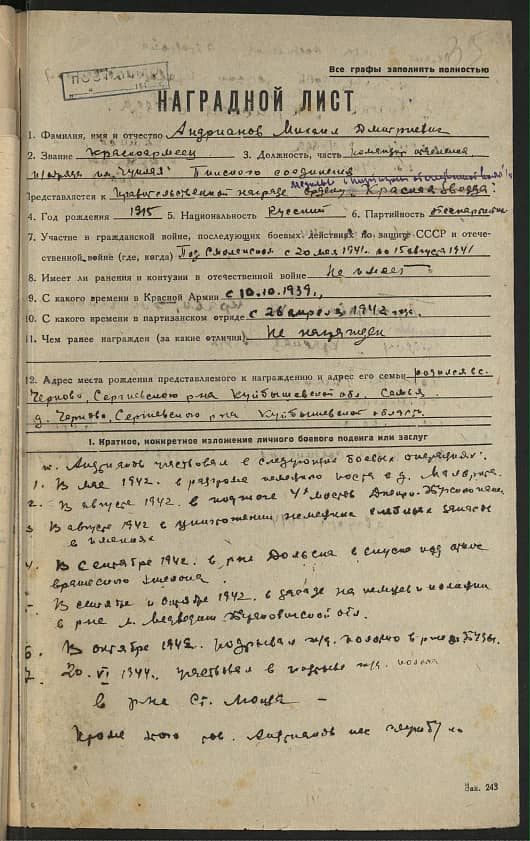 35
Все графы заполнить полностью
НАГРАДНОЙ ЛИСТ
1. Фамилия, имя и отчество Андрианов Михаил Дмитриевич
2. Звание Красноармеец 3. Должность, часть Командир отделения
отряда им. Чуклая Пинского соединения
медалью
Представляется к Правительственной награде ордену "Красная Звезда"
4. Год рождения 1915 5. Национальность Русский 6. Партийность беспартийн
7. Участие в гражданской войне, последующих боевых действиях по защите СССР и отече-
ственной войне (где, когда) Под Смоленском с 20 мая 1941 по 15 августа 1941
8. Имеет ли ранения и контузии в отечественной войне Не имеет
9. С какого времени в Красной Армии с 10.10.1939г.
10. С какого времени в партизанском отряде с 28 апреля 1942 года
11. Чем ранее награжден (за какие отличия) Не награжден
12. Адрес места рождения представляемого к награждению и адрес его семьи родился в с.
Черново, Сергиевского р-на Куйбышевской обл. Семья
д. Черново, Сергиевского р-на Куйбышевской область
I. Краткое, конкретное изложение личного боевого подвига или заслуг
т. Андрианов участвовал в следующих боевых операциях:
1. В мае 1942. в разгроме немецкого поста в д.
2. В августе 1942. в поджоге 4х мостов Днепро-Бугского канала
3 В августе 1942 в уничтожении немецких хлебных запасов
в имениях
4. В сентябре 1942. в р-не Дольска в спуске под откос
вражеского эшелона.
5. В сентябре и октябре 1942. в засаде на немцев и полицию
в р-не м. Медведичи Барановичской обл.
6. В октябре 1942. подрывал ж/д. полотно в р-не
7. 20.VI 1944. участвовал в подрыве ж/д. полотна
в р-не ст.
Кроме того тов. Андрианов нес службу по
Зак. 243